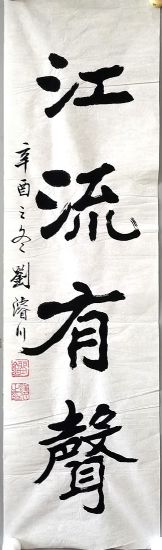 江流有聲
辛酉之冬 劉濬川